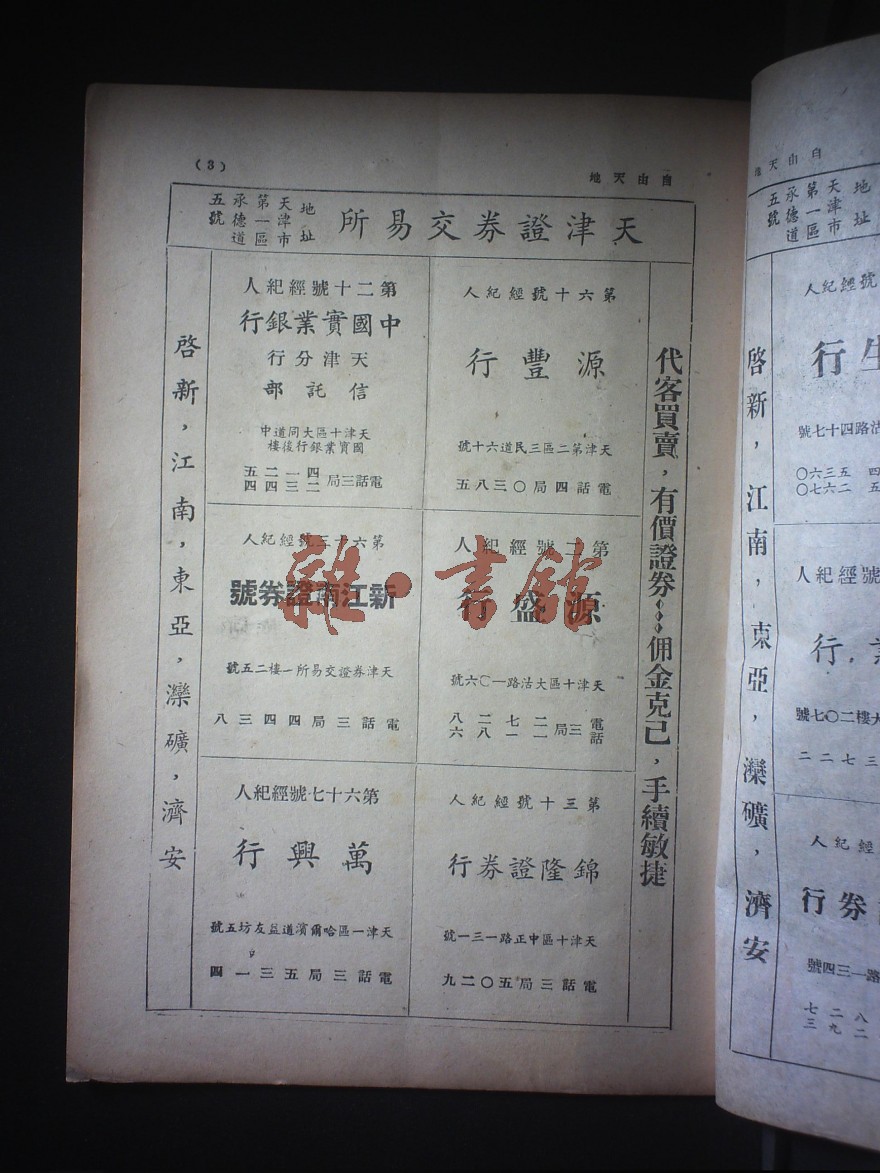 (3)
自由天地
天津證券交易所
地址
天津市
第一區
承德道
五號
代客買賣，有價證券……佣金克己，手續敏捷
第六十號經紀人
源豐行
天津第二區三民道六十號
電話四局〇三八五
第二十號經紀人
中國實業銀行
天津分行
信託部
天津十區大同道中
國實業銀行後樓
電話三局
四一二五
二三四四
第二號經紀人
源盛行
天津十區大沽路一〇六號
電話三局
二七二八
一一八六
第六十三號經紀人
新江南證券號
天津券證交易所一樓二五號
電話三局四四三八
第三十號經紀人
錦隆證券行
天津十區中正路一三一號
電話三局五〇二九
第六十七號經紀人
萬興行
天津一區哈爾濱道益友坊五號
電話三局五三一四
啓新，江南，東亞，灤礦，濟安
雜·書館
自由天地
地址
天津市
第一區
承德道
五號
號經紀人
生行
沽路四十七號
號經紀人
行
大樓二〇七號
二二七三
經紀人
券行
路一三四號
啓新，江南，東亞，灤礦，濟安